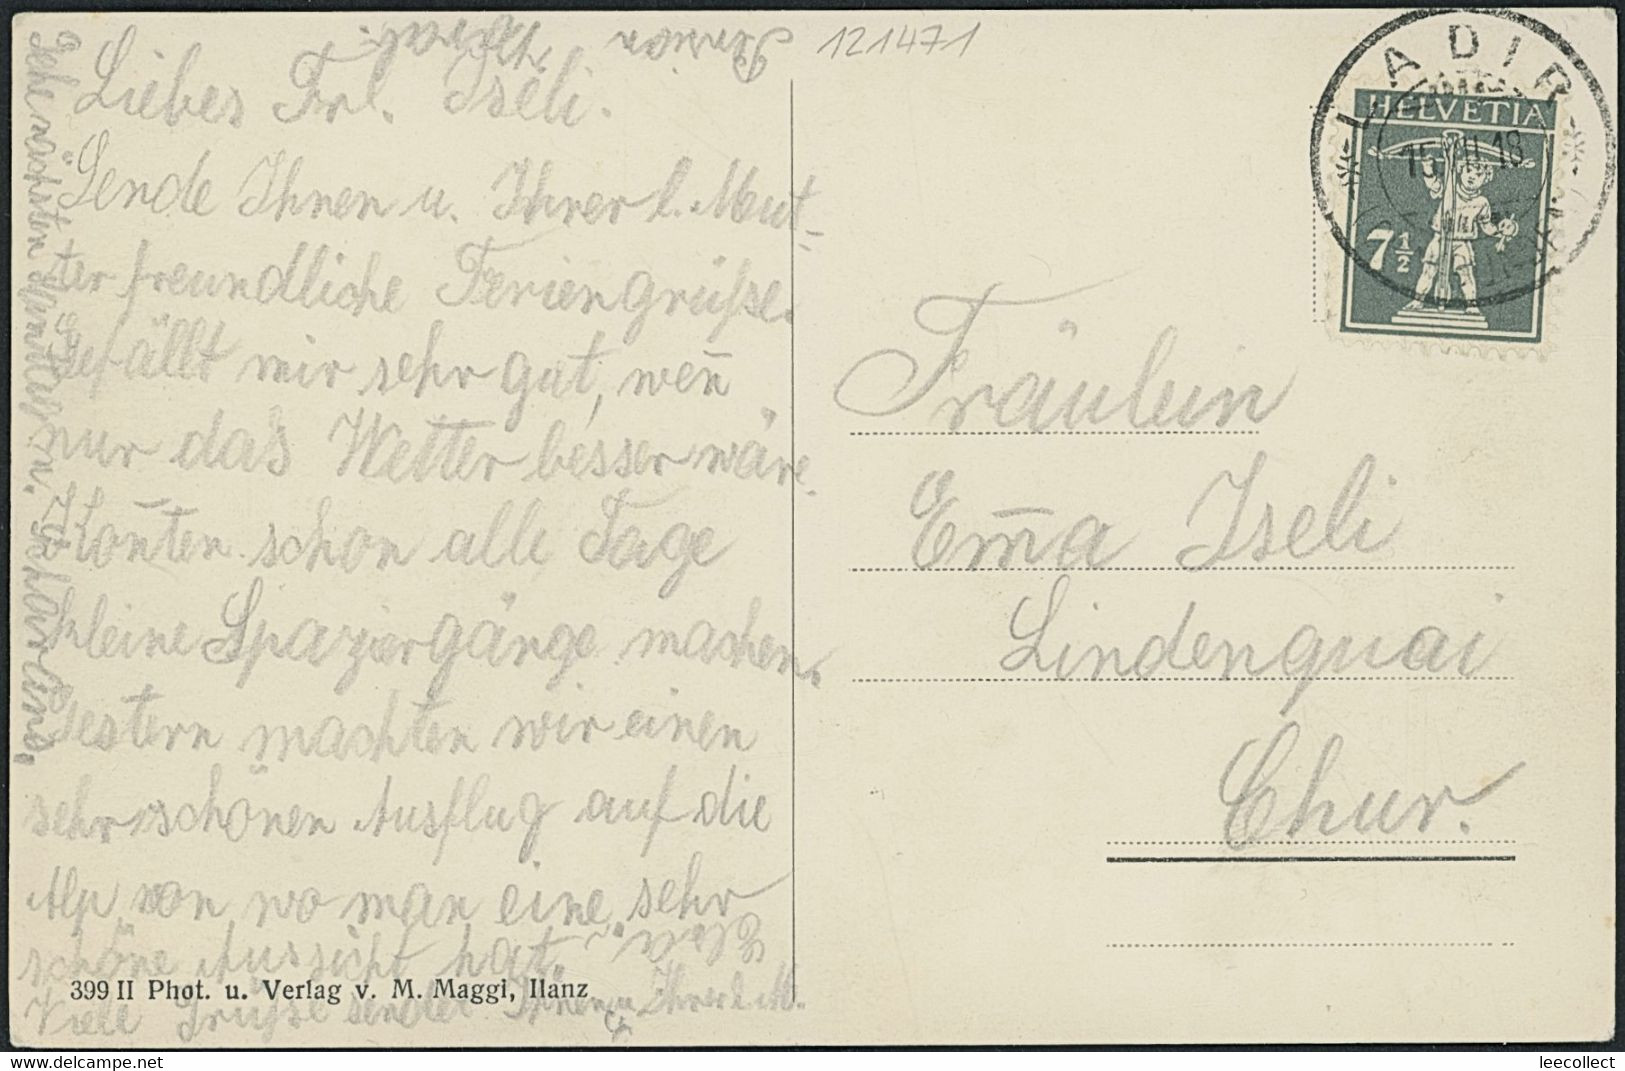 Liebes Frl. Iseli.
Sende Ihnen u. Ihrer l. Mut-
ter freundliche Feriengrüsse.
Gefällt mir sehr gut, wen̄
nur das Wetter besser wäre.
Kon̄ten schon alle Tage
kleine Spaziergänge machen.
Gestern machten wir einen
sehr schönen Ausflug auf die
Alp von wo man eine sehr
schöne Aussicht hat.
Viele Grüsse sendet Ihnen u. Ihrer l. M.
Gehe nächsten
n.
Pension
121471
LADIR
15. VII. 18
HELVETIA
7½
Fräulein
Em̄a Iseli
Lindenquai
Chur.
399 II Phot. u. Verlag v. M. Maggi, Ilanz
leecollect